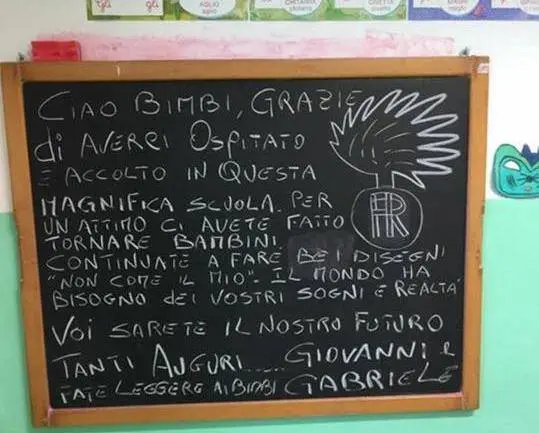 CIAO BIMBI, GRAZIE
di AVERCI OSPITATO
E ACCOLTO IN QUESTA
MAGNIFICA SCUOLA. PER
UN ATTIMO CI AVETE FATTO
TORNARE BAMBINI.
CONTINUATE A FARE BEI DISEGNI
"NON COME IL MIO". IL MONDO HA
BISOGNO dEI VOSTRI SOGNI E REALTA'
VOI SARETE IL NOSTRO FUTURO
TANTI AUGURI..... GIOVANNI e
FATE LEGGERE AI BIMBI GABRIELE